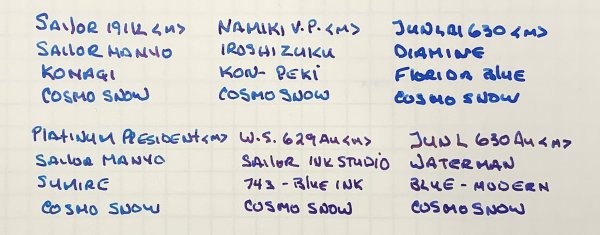 SAILOR 1911L <M>
SAILOR MANYO
KONAGI
COSMO SNOW
NAMIKI V.P. <M>
IROSHIZUKU
KON-PEKI
COSMO SNOW
JUNLAI 630 <M>
DIAMINE
FLORIDA BLUE
COSMO SNOW
PLATINUM PRESIDENT <M>
SAILOR MANYO
SUMIRE
COSMO SNOW
W.S. 629AU <M>
SAILOR INK STUDIO
743 - BLUE INK
COSMO SNOW
JUN L 630 AU <M>
WATERMAN
BLUE - MODERN
COSMO SNOW